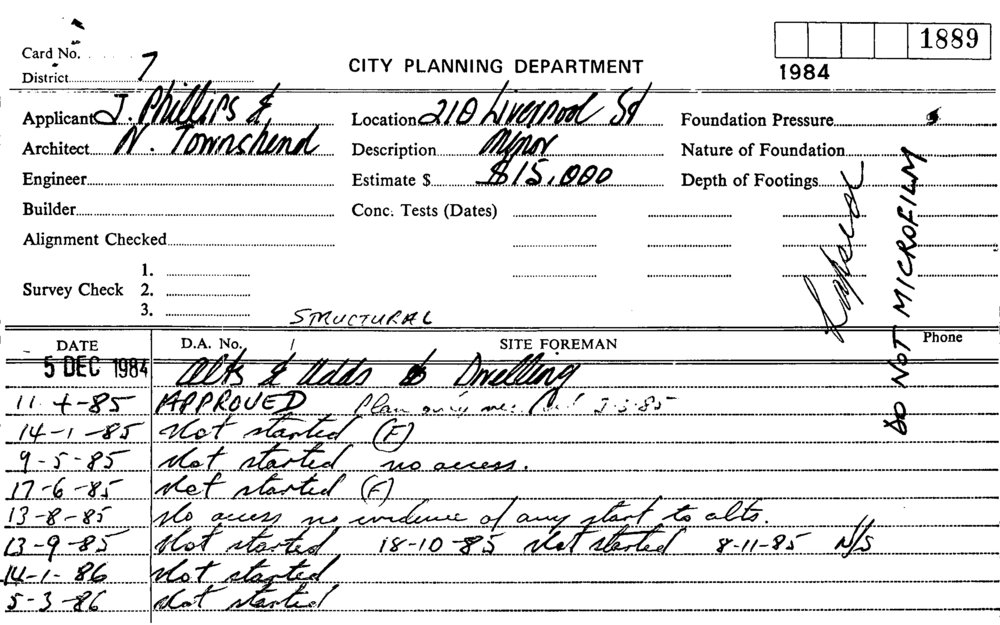 1889
Card No.
7
CITY PLANNING DEPARTMENT
1984
District
Applicant J. Phillips &
Location 210 Liverpool St
Foundation Pressure
Architect N. Townshend
Description Minor
Nature of Foundation
Engineer
Estimate $ $15,000
Depth of Footings
Builder
Conc. Tests (Dates)
Alignment Checked
1.
Survey Check 2.
3.
DO NOT MICROFILM
STRUCTURAL
DATE D.A. No. SITE FOREMAN Phone
5 DEC 1984 Alts & Adds to Dwelling
11-4-85 APPROVED Plan
14-1-85 Not started (F)
9-5-85 Not started no access.
17-6-85 Not started (F)
13-8-85 No access no evidence of any start to alts.
13-9-85 Not started 18-10-85 Not started 8-11-85 N/S
14-1-86 Not started
5-3-86 Not started